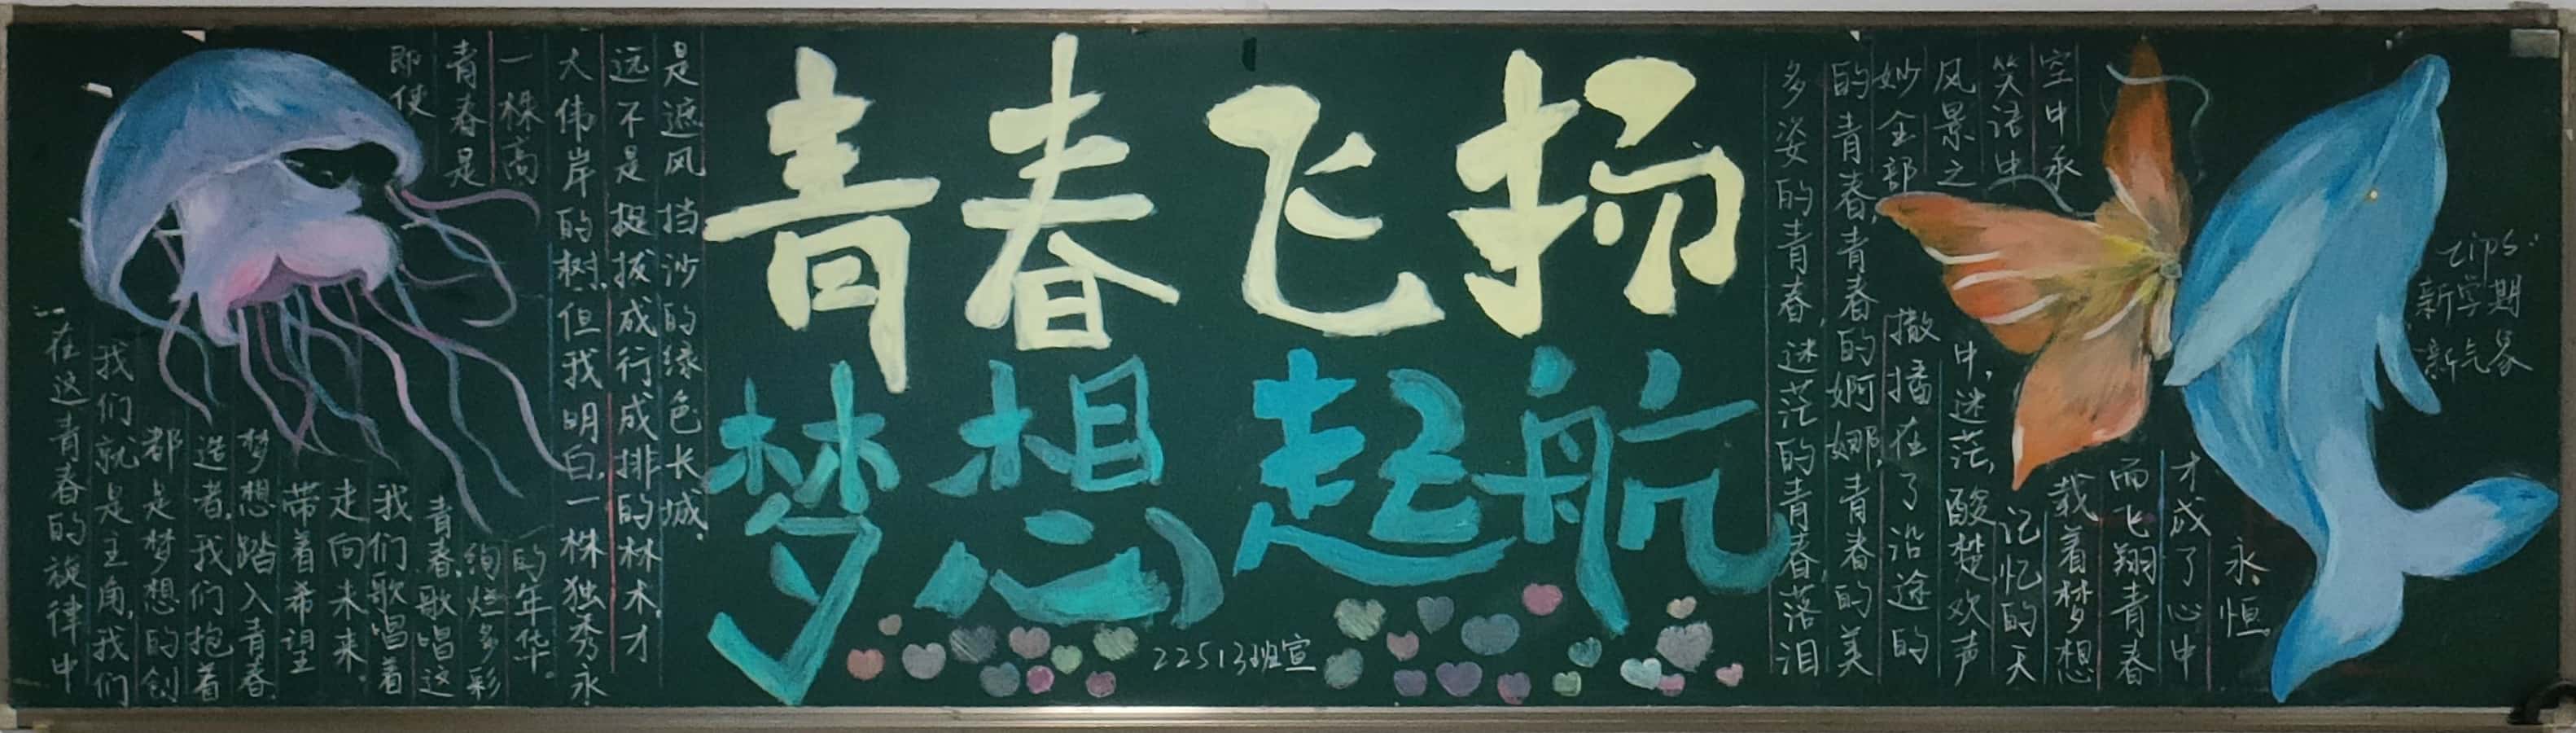 青春飞扬
梦想起航
即使
青春是
一株高
大伟岸的树.但我明白.一株独秀永
远不是挺拔成行成排的林木,才
是遮风挡沙的绿色长城.
在这青春的旋律中
我们就是主角,我们
都是梦想的创
造者,我们抱着
梦想踏入青春.
带着希望
走向未来.
我们歌唱着
青春,歌唱这
绚烂多彩
的年华。
22513班宣
多姿的青春,迷茫的青春,落泪
的青春,青春的婀娜,青春的美
妙全部撒播在了沿途的
风景之中,迷茫,酸楚欢声
笑语中记忆的天
空中承载着梦想
而飞翔青春
才成了心中
永恒.
tips:
新学期
新气象